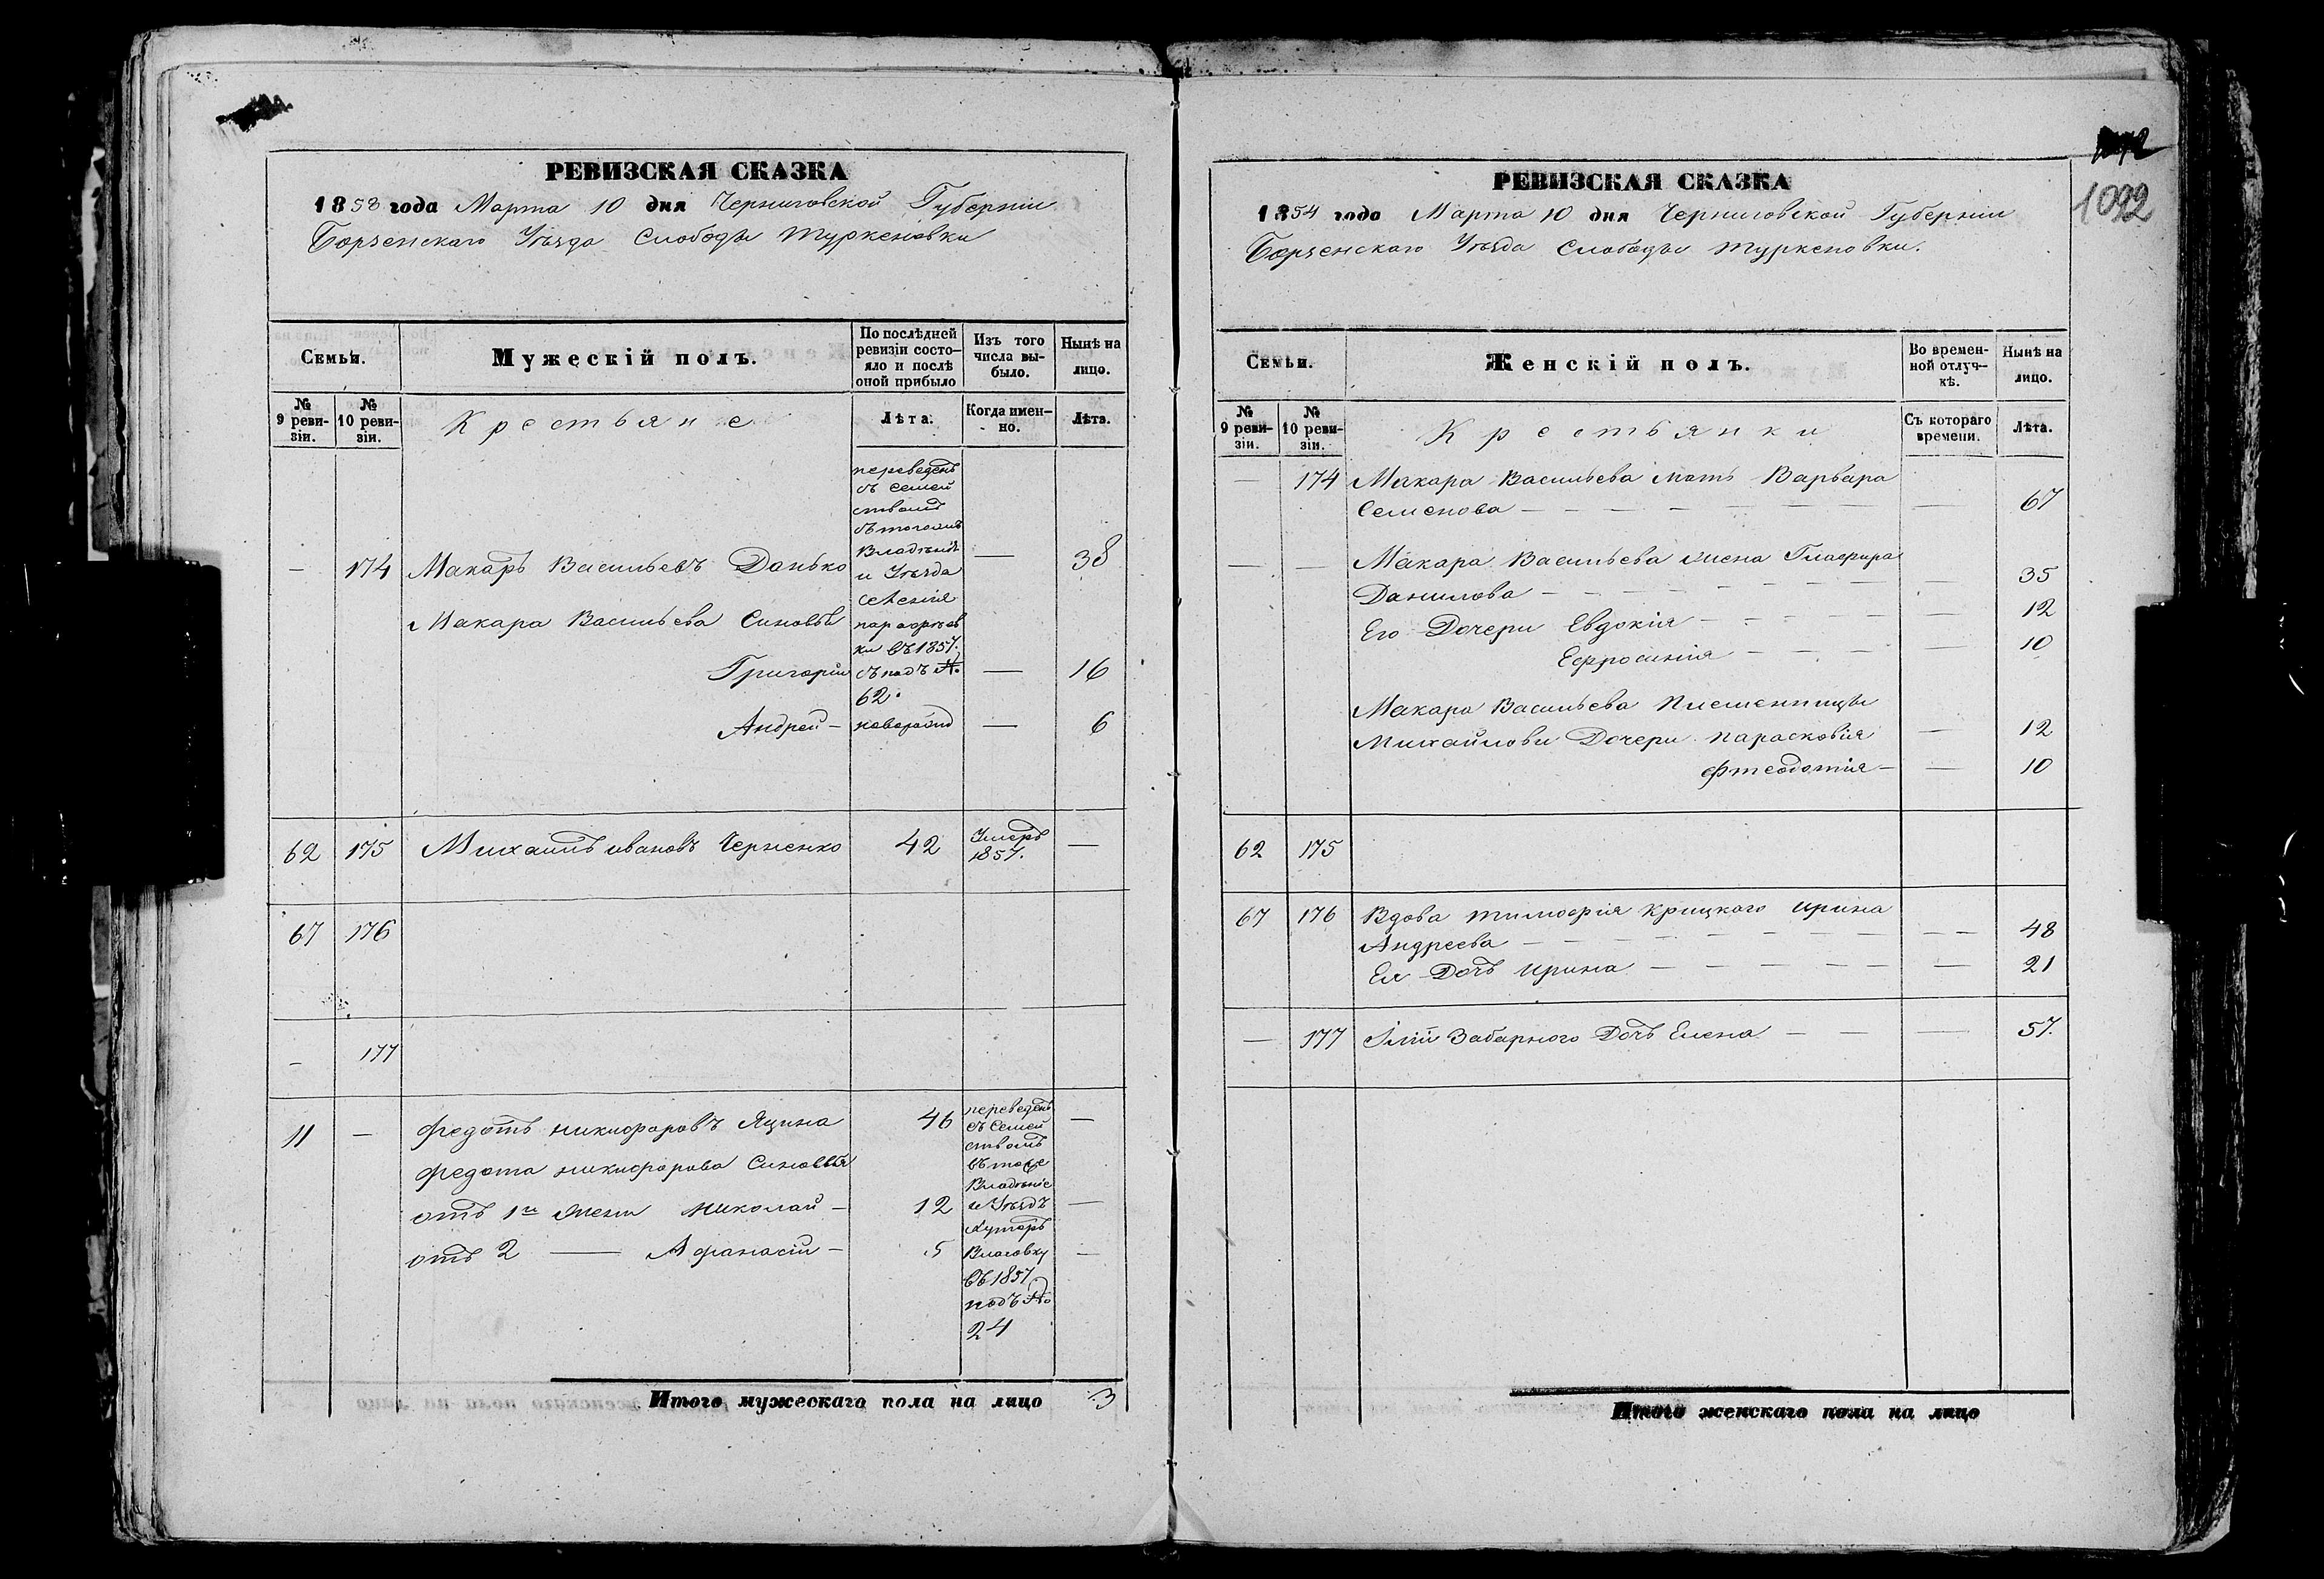 РЕВИЗСКАЯ СКАЗКА
1858 года Марта 10 дня Черниговской Губерніи
Борзенскаго Уѣзда Слободы Туркеновки
Семьи.
Мужескій полъ.
По послѣдней ревизіи состо-
яло и послѣ оной прибыло
Изъ того числа вы-
было.
Нынѣ на лицо.
№ 9 реви-
зіи.
№ 10 реви-
зіи.
Крестьяне
Лѣта.
Когда имен-
но.
Лѣта.
переведенъ
съ семей
ствомъ
съ тогожъ
Владѣнія
и Уѣзда
селенія
ки въ 1857.
съ подъ №
62.
— 174 Макаръ Васильевъ Данько — 38
Макара Васильева Сыновья
Григорій — 16
Андрей — новорожд — 6
62 175 Михаилъ Ивановъ Черненко 42 Умеръ 1857. —
67 176
— 177
11 — Федотъ Никифоровъ Яцина 46 —
Федота Никифорова Сыновья
отъ 1й жены Николай — 12 —
отъ 2 — Афанасій — 5 —
переведенъ
съ семей
ствомъ
въ тоже
Владѣніе
и Уѣздъ
Хуторъ
въ 1857
подъ №
24
Итого мужескаго пола на лицо 3
1092
РЕВИЗСКАЯ СКАЗКА
1854 года Марта 10 дня Черниговской Губерніи
Борзенскаго Уѣзда Слободы Туркеновки.
Семьи.
Женскій полъ.
Во времен-
ной отлуч-
кѣ.
Нынѣ на лицо.
№ 9 реви-
зіи.
№ 10 реви-
зіи.
Крестьянки
Съ котораго времени.
Лѣта.
— 174 Макара Васильева мать Варвара
Семенова — — 67
— — Макара Васильева жена Глафира
Данилова — — 35
Его Дочери Евдокія — — 12
Ефросинія — — 10
Макара Васильева Племенницы
Михайловы Дочери Парасковія — 12
Фтеодотія — — 10
62 175
67 176 Вдова Тимофія Крицкаго Ирина
Андреева — — 48
Ея Дочь Ирина — — 21
— 177 Іліи Забарного Дочь Елена — — 57.
Итого женскаго пола на лицо